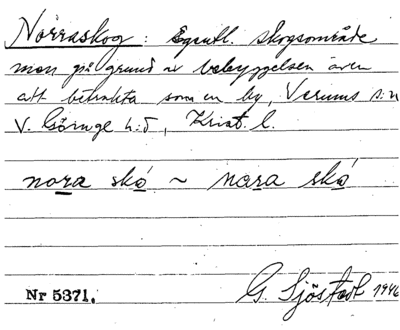 Norraskog: Egentl. skogsområde
men på grund av bebyggelsen även
att betrakta som en by, Verums s:n
V. Göinge h:d, Krist. l.
nora skó ~ nara skó
Nr 5371. G. Sjöstedt 1946